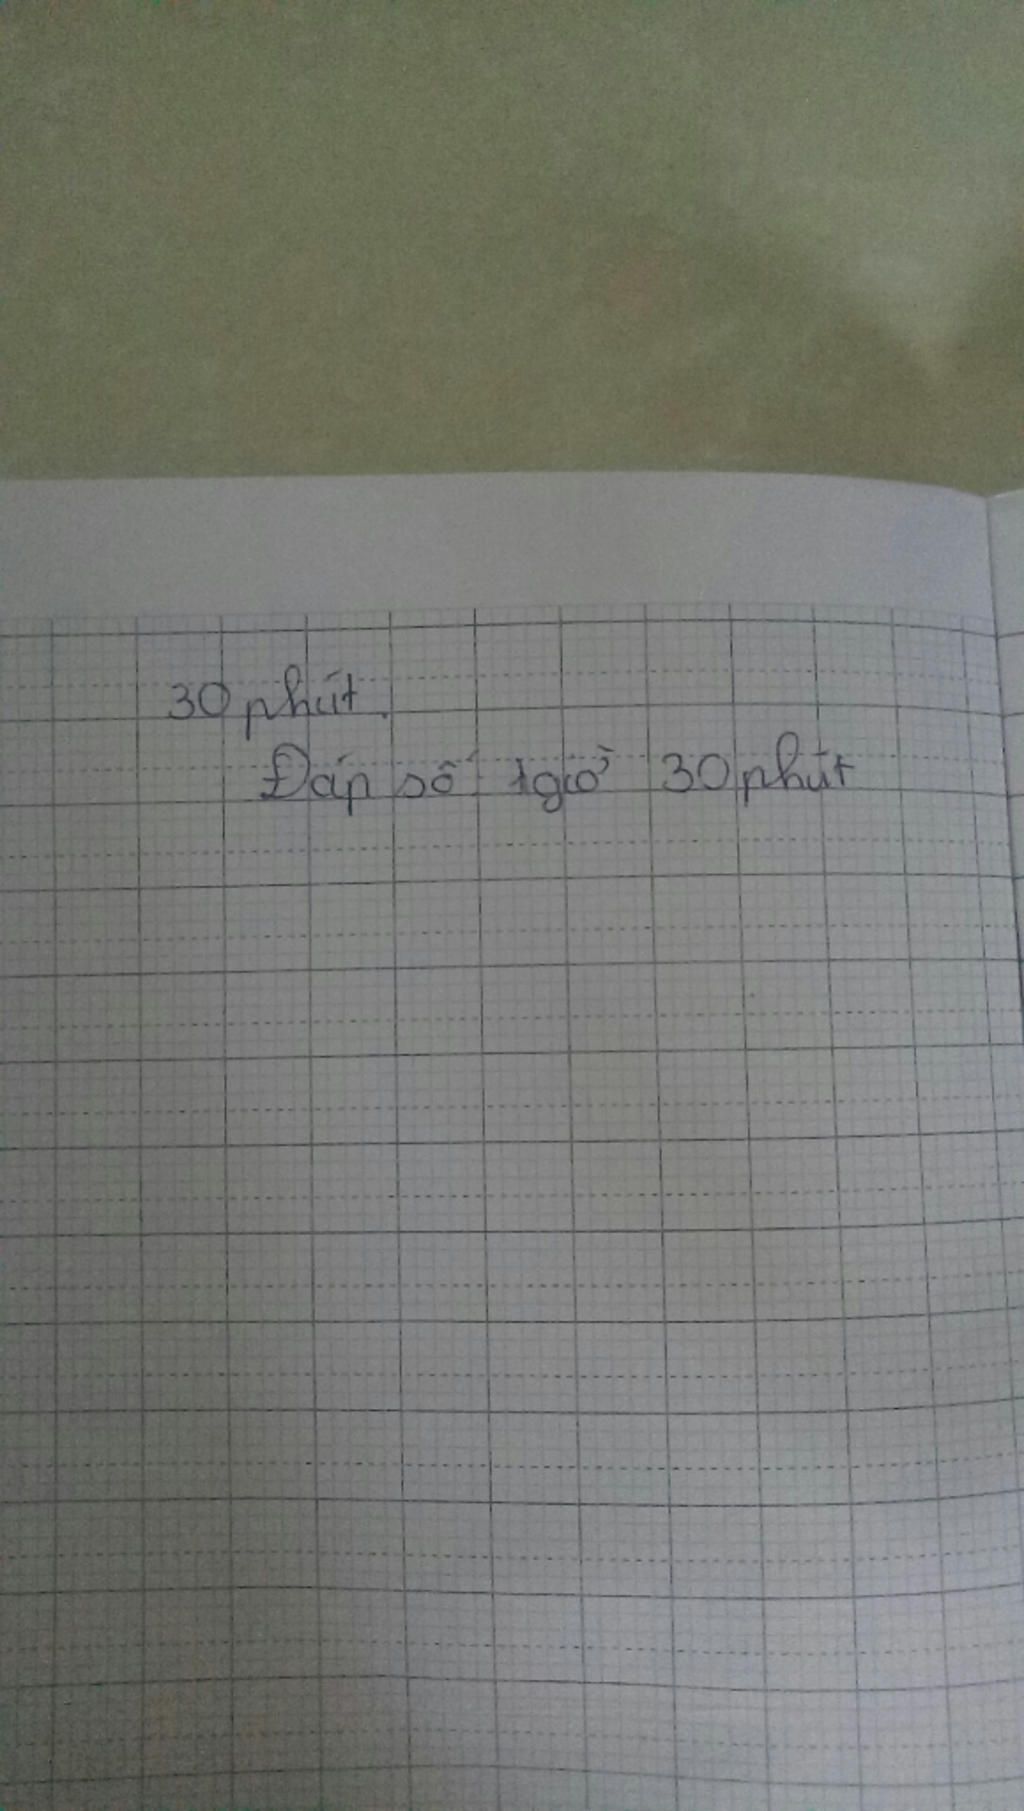 30 phút.
Đáp số: 1 giờ 30 phút